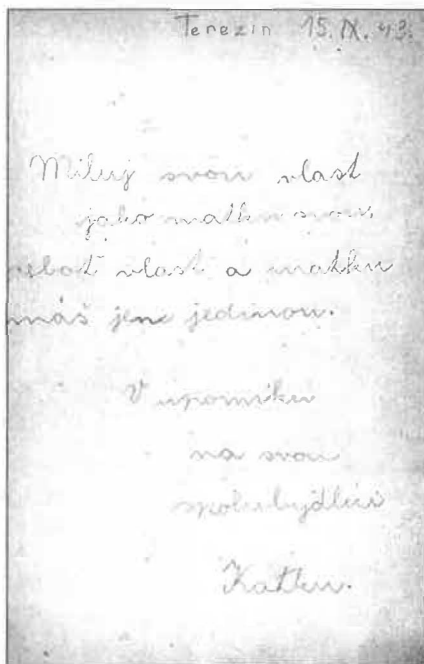 Terezín 15. IX. 43.
Miluj svou vlast
jako matku svou,
neboť vlast a matku
máš jen jedinou.
V upomínku
na svou
spolubydlící
Kathu.